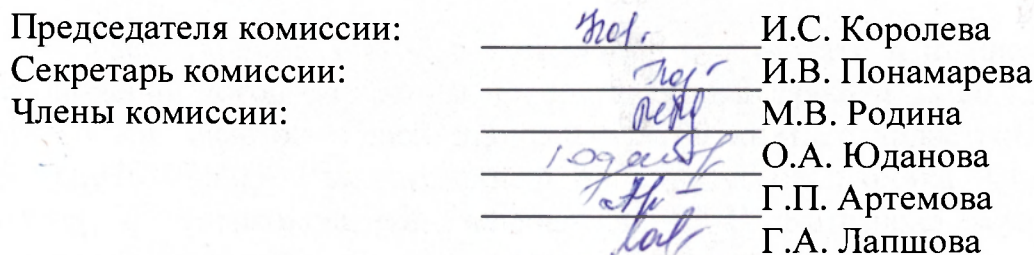 Председателя комиссии: И.С. Королева
Секретарь комиссии: И.В. Понамарева
Члены комиссии: М.В. Родина
О.А. Юданова
Г.П. Артемова
Г.А. Лапшова